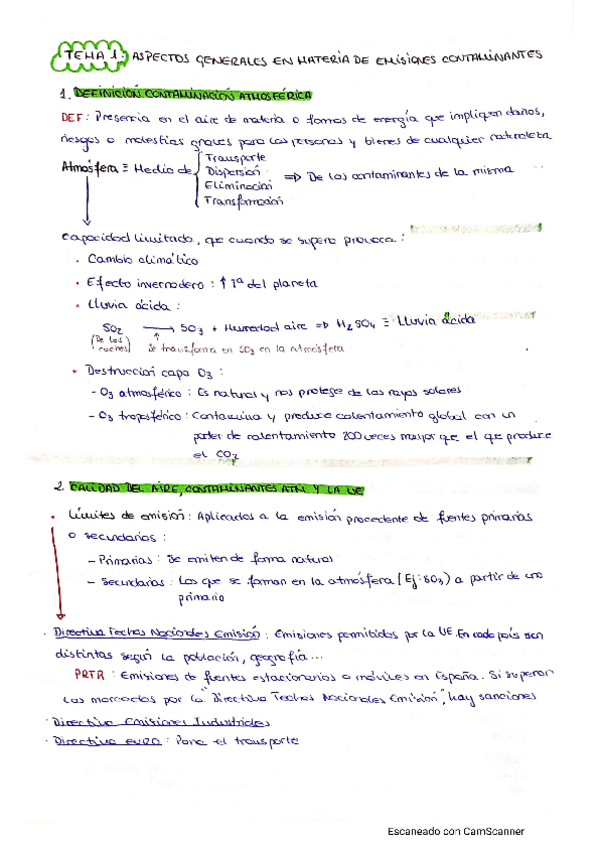 TEMA 1: ASPECTOS GENERALES EN MATERIA DE EMISIONES CONTAMINANTES
1. DEFINICIÓN CONTAMINACIÓN ATMOSFÉRICA
DEF: Presencia en el aire de materia o formas de energía que impliquen daños,
riesgos o molestias graves para las personas y bienes de cualquier naturaleza
Atmósfera ≡ Medio de { Transporte
Dispersión
Eliminación
Transformación
⇒ De los contaminantes de la misma
Capacidad limitada, que cuando se supera provoca:
· Cambio climático
· Efecto invernadero: ↑ Tª del planeta
· Lluvia ácida:
SO2 → SO3 + Humedad aire ⇒ H2SO4 ≡ Lluvia ácida
(De los coches) Se transforma en SO3 en la atmósfera
· Destrucción capa O3:
- O3 atmosférico: Es natural y nos protege de los rayos solares
- O3 troposférico: Contamina y produce calentamiento global con un
poder de calentamiento 200 veces mayor que el que produce
el CO2
2. CALIDAD DEL AIRE, CONTAMINANTES ATM. Y LA UE
· Límites de emisión: Aplicados a la emisión procedente de fuentes primarias
o secundarias:
- Primarias: Se emiten de forma natural
- Secundarias: Las que se forman en la atmósfera (Ej: SO3) a partir de una
primaria
· Directiva Techos Nacionales Emisión: Emisiones permitidas por la UE. En cada país son
distintas según la población, geografía...
PRTR: Emisiones de fuentes estacionarias o móviles en España. Si superan
las marcadas por la "Directiva Techos Nacionales Emisión", hay sanciones
· Directiva Emisiones Industriales
· Directiva EURO: Para el transporte
Escaneado con CamScanner